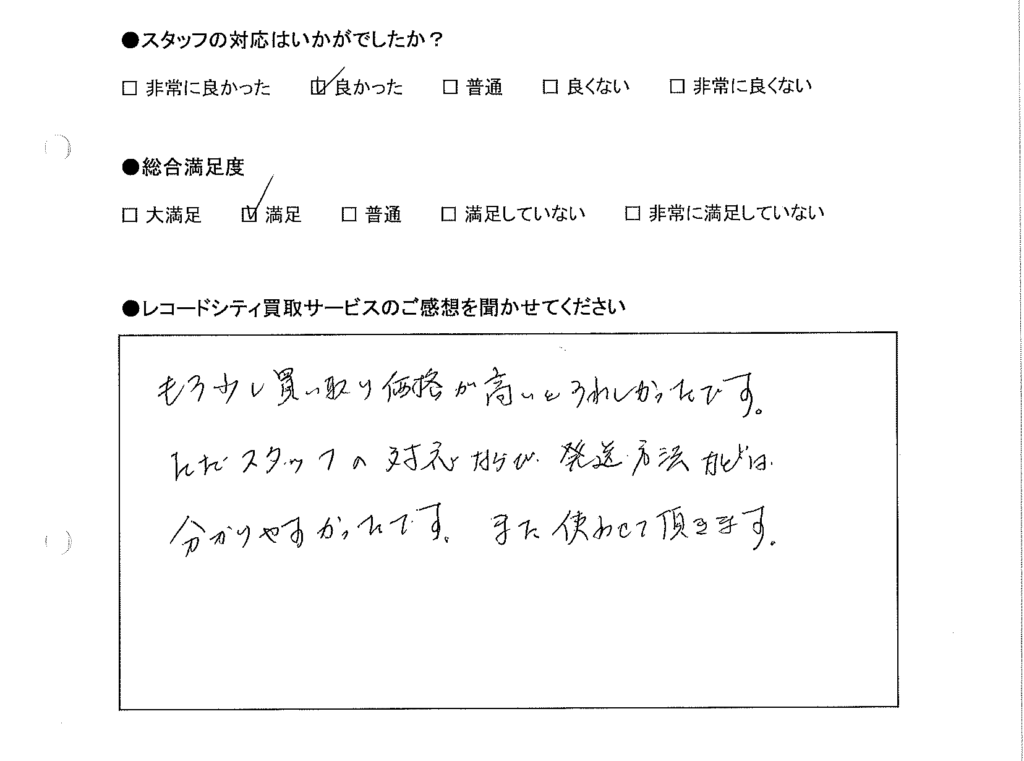 ●スタッフの対応はいかがでしたか？
□ 非常に良かった ☑ 良かった □ 普通 □ 良くない □ 非常に良くない
●総合満足度
□ 大満足 ☑ 満足 □ 普通 □ 満足していない □ 非常に満足していない
●レコードシティ買取サービスのご感想を聞かせてください
もう少し買い取り価格が高いとうれしかったです。
ただスタッフの対応ならび発送方法などは
分かりやすかったです。また使わせて頂きます。